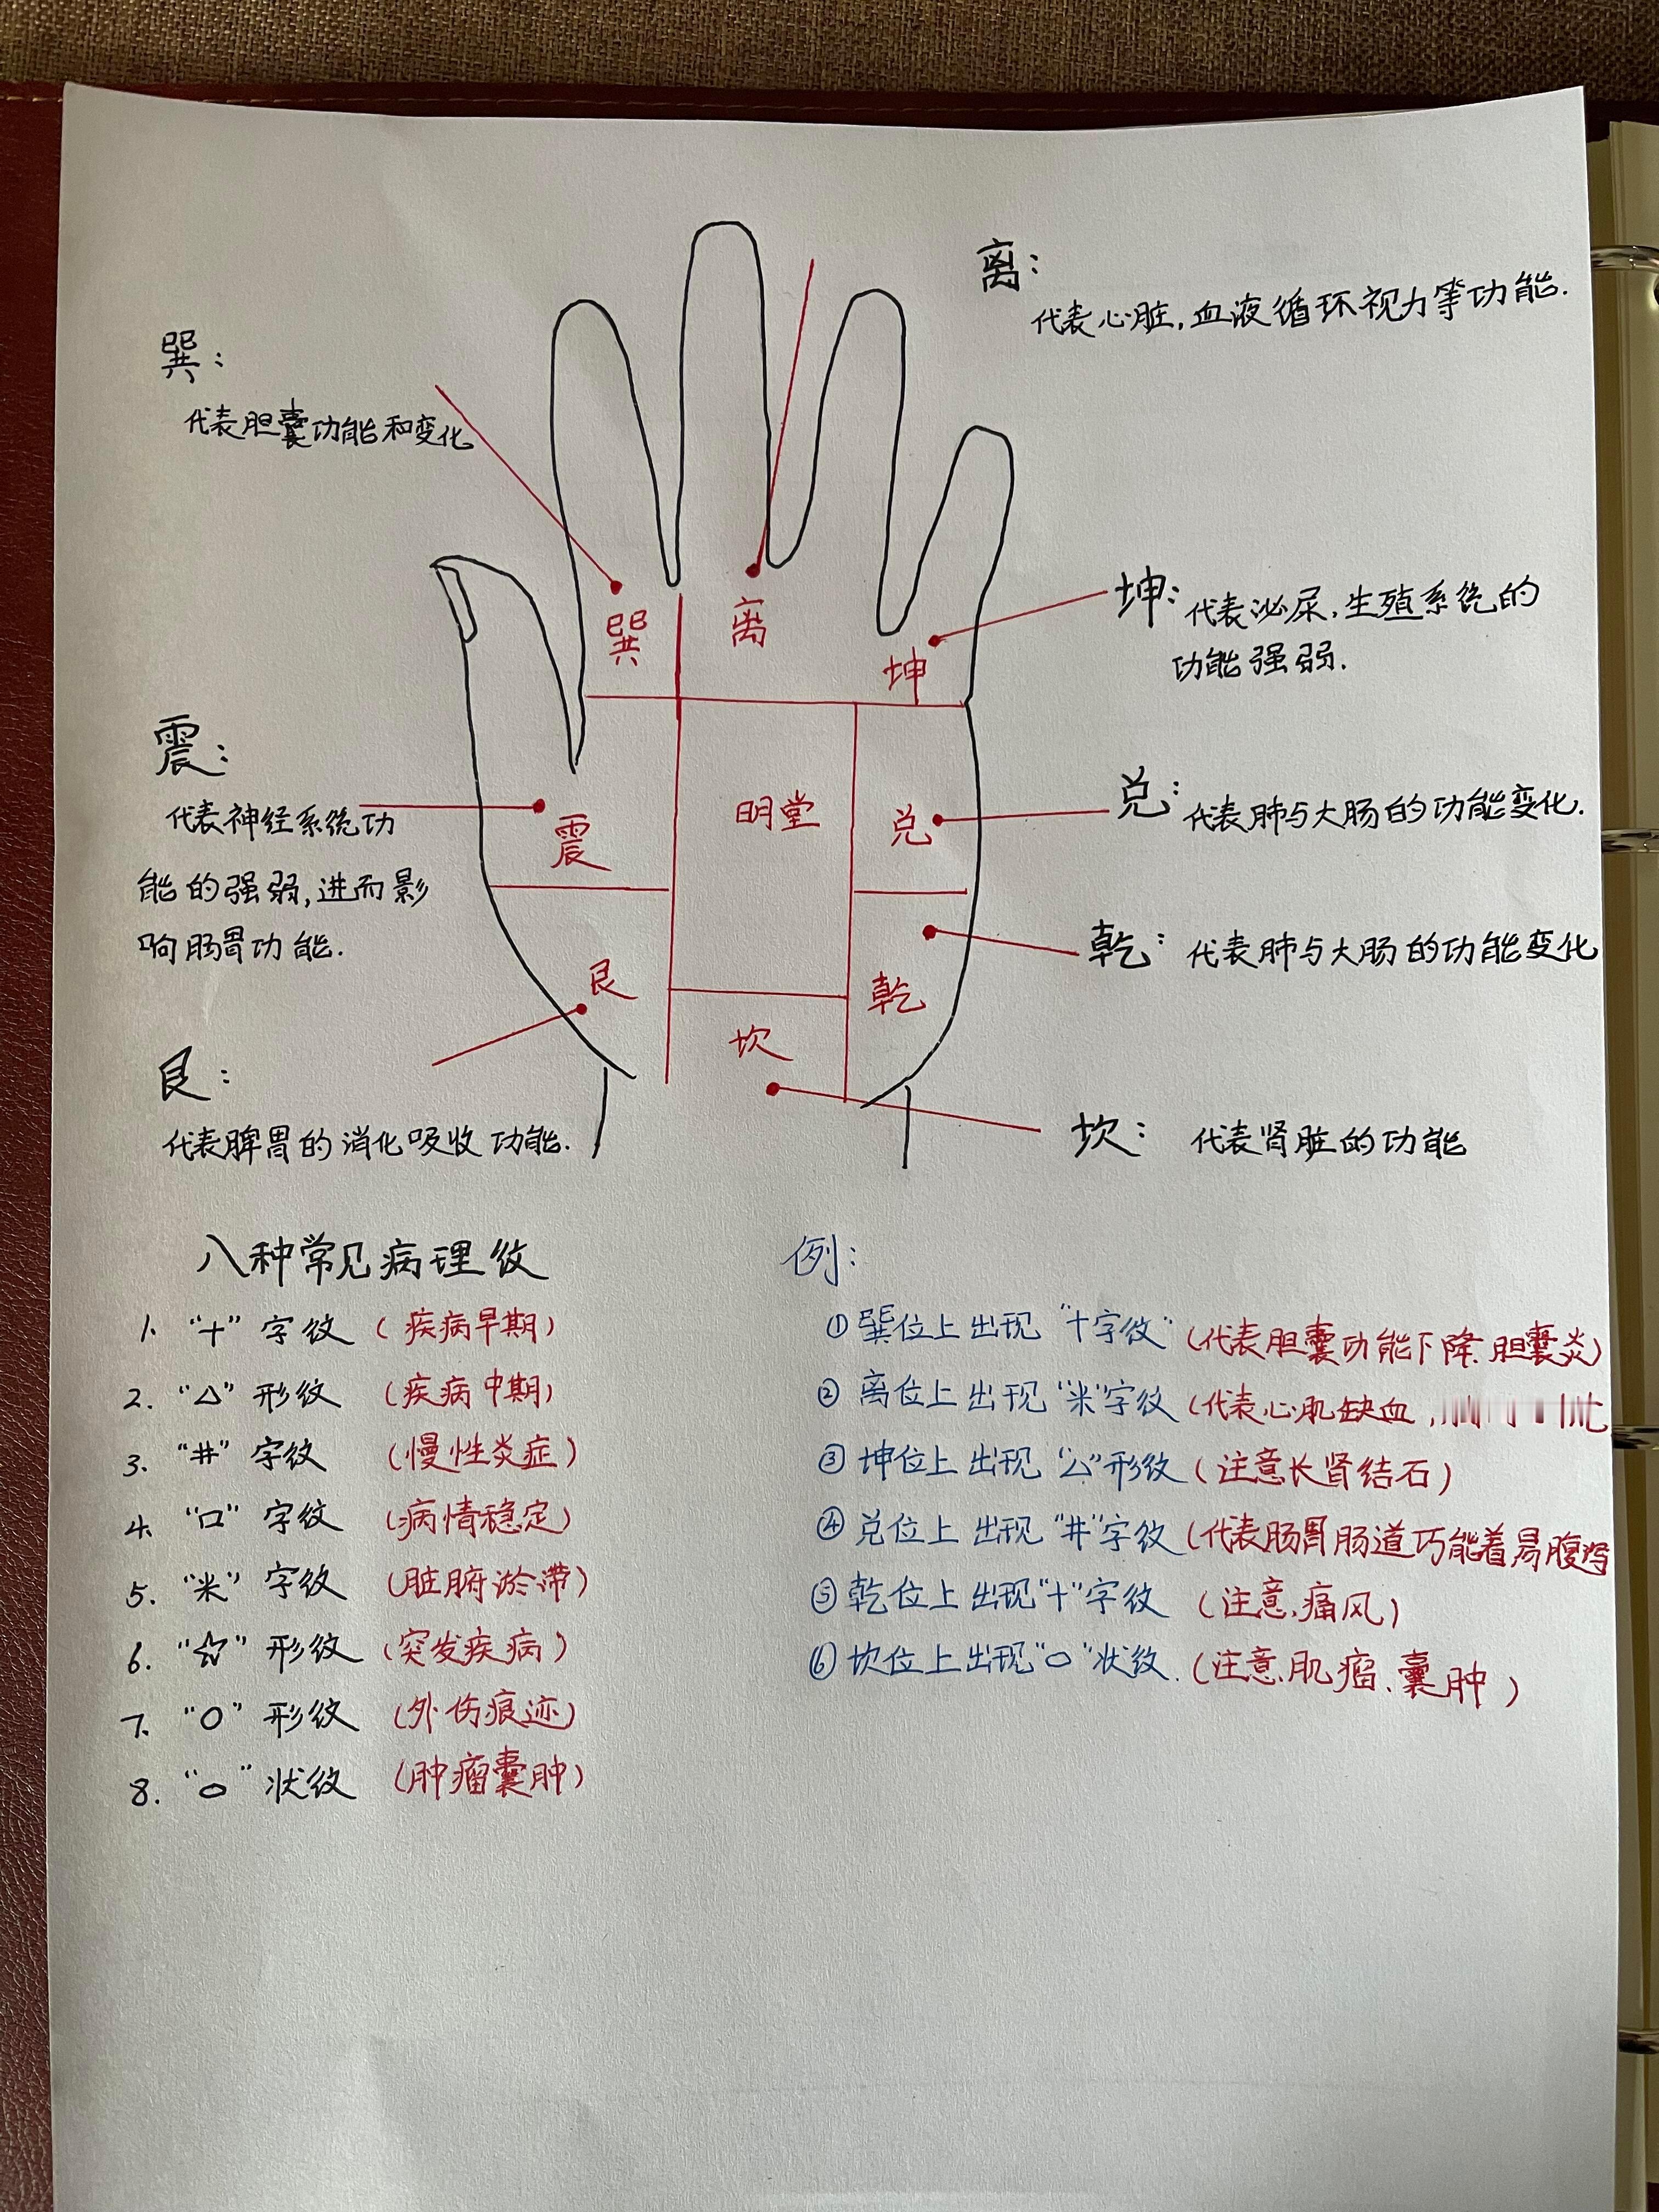 离：
代表心脏，血液循环视力等功能.
巽：
代表胆囊功能和变化
巽
离
坤
坤：代表泌尿，生殖系统的
功能强弱.
震：
代表神经系统功
能的强弱，进而影
响肠胃功能.
震
明堂
兑
兑：代表肺与大肠的功能变化.
艮
乾
乾：代表肺与大肠的功能变化
坎
艮：
代表脾胃的消化吸收功能.
坎：代表肾脏的功能
八种常见病理纹
1. “十”字纹（疾病早期）
2. “△”形纹（疾病中期）
3. “井”字纹（慢性炎症）
4. “口”字纹（病情稳定）
5. “米”字纹（脏腑淤滞）
6. “☆”形纹（突发疾病）
7. “O”形纹（外伤痕迹）
8. “O”状纹（肿瘤囊肿）
例：
① 巽位上出现“十字纹”（代表胆囊功能下降.胆囊炎）
② 离位上出现“米”字纹（代表心肌缺血，
③ 坤位上出现“△”形纹（注意长肾结石）
④ 兑位上出现“井”字纹（代表肠胃肠道巧能着易腹泻
⑤ 乾位上出现“十”字纹（注意.痛风）
⑥ 坎位上出现“O”状纹.（注意.肌瘤.囊肿）